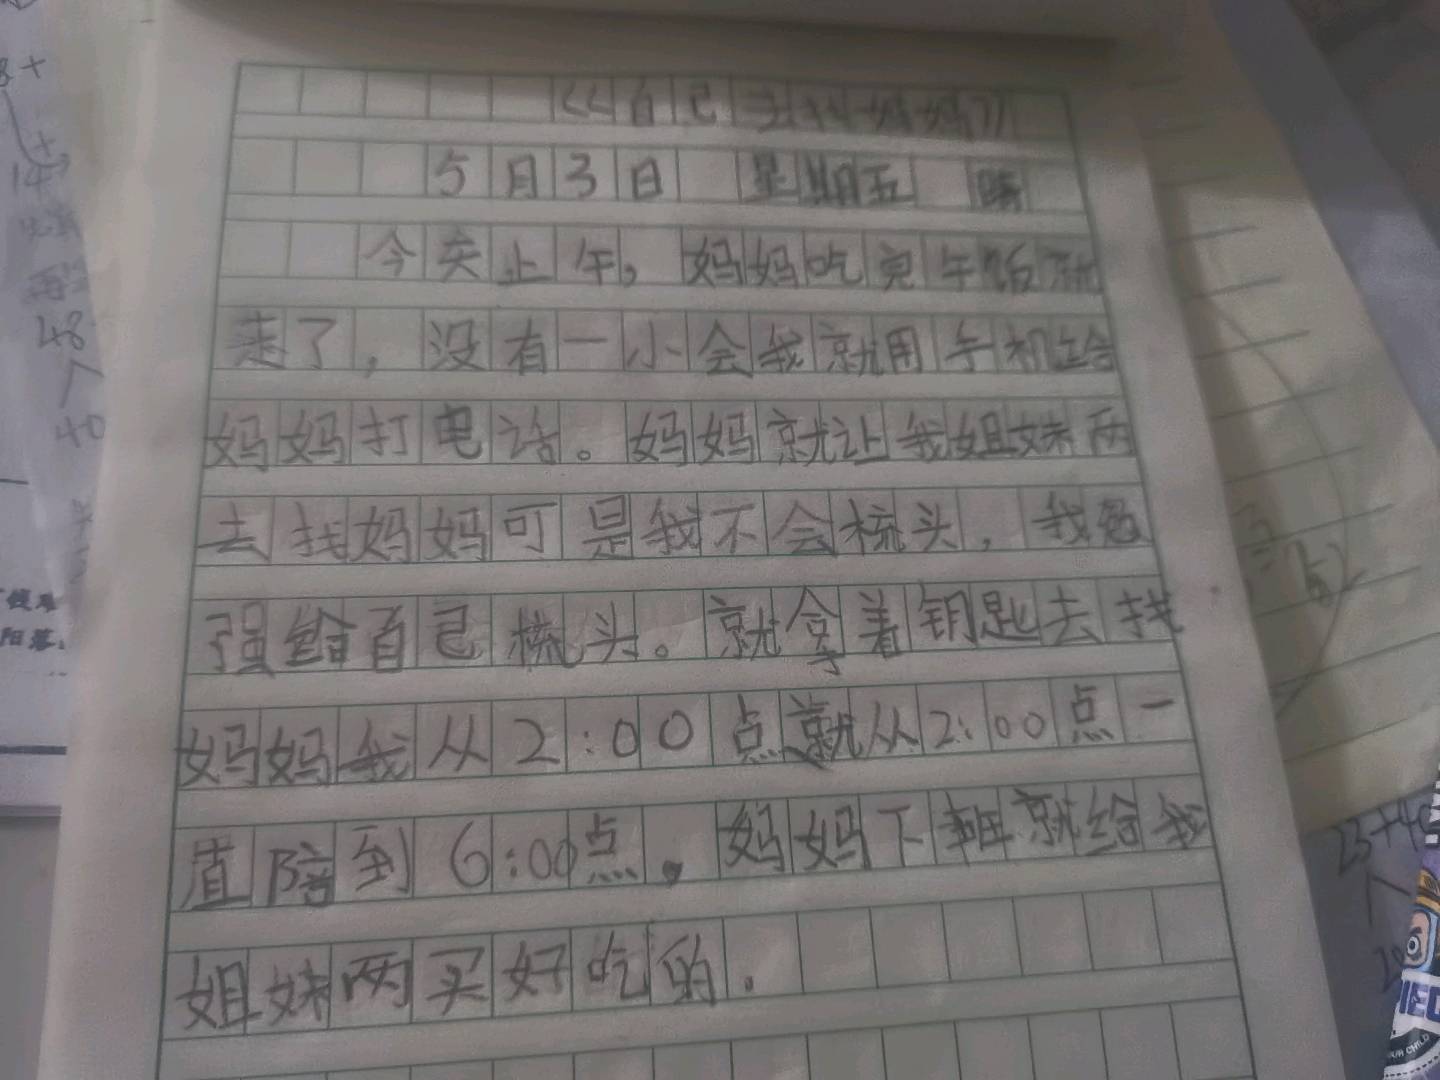 《自己去找妈妈》
5月3日 星期五 晴
今天上午，妈妈吃完午饭就
走了，没有一小会我就用手机给
妈妈打电话。妈妈就让我姐妹两
去找妈妈可是我不会梳头，我勉
强给自己梳头。就拿着钥匙去找
妈妈我从2:00点就从2:00点一
直陪到6:00点.妈妈下班就给我
姐妹两买好吃的.
8+
14
48
40
23+40
OUR CHILD